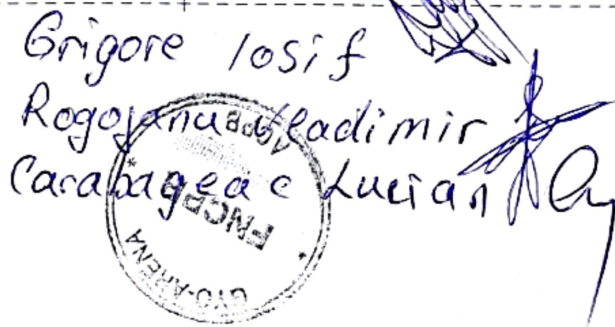 Grigore Iosif
Rogojanu Vladimir
Carabageac Lucian
FNCPB
GYO-ARENA